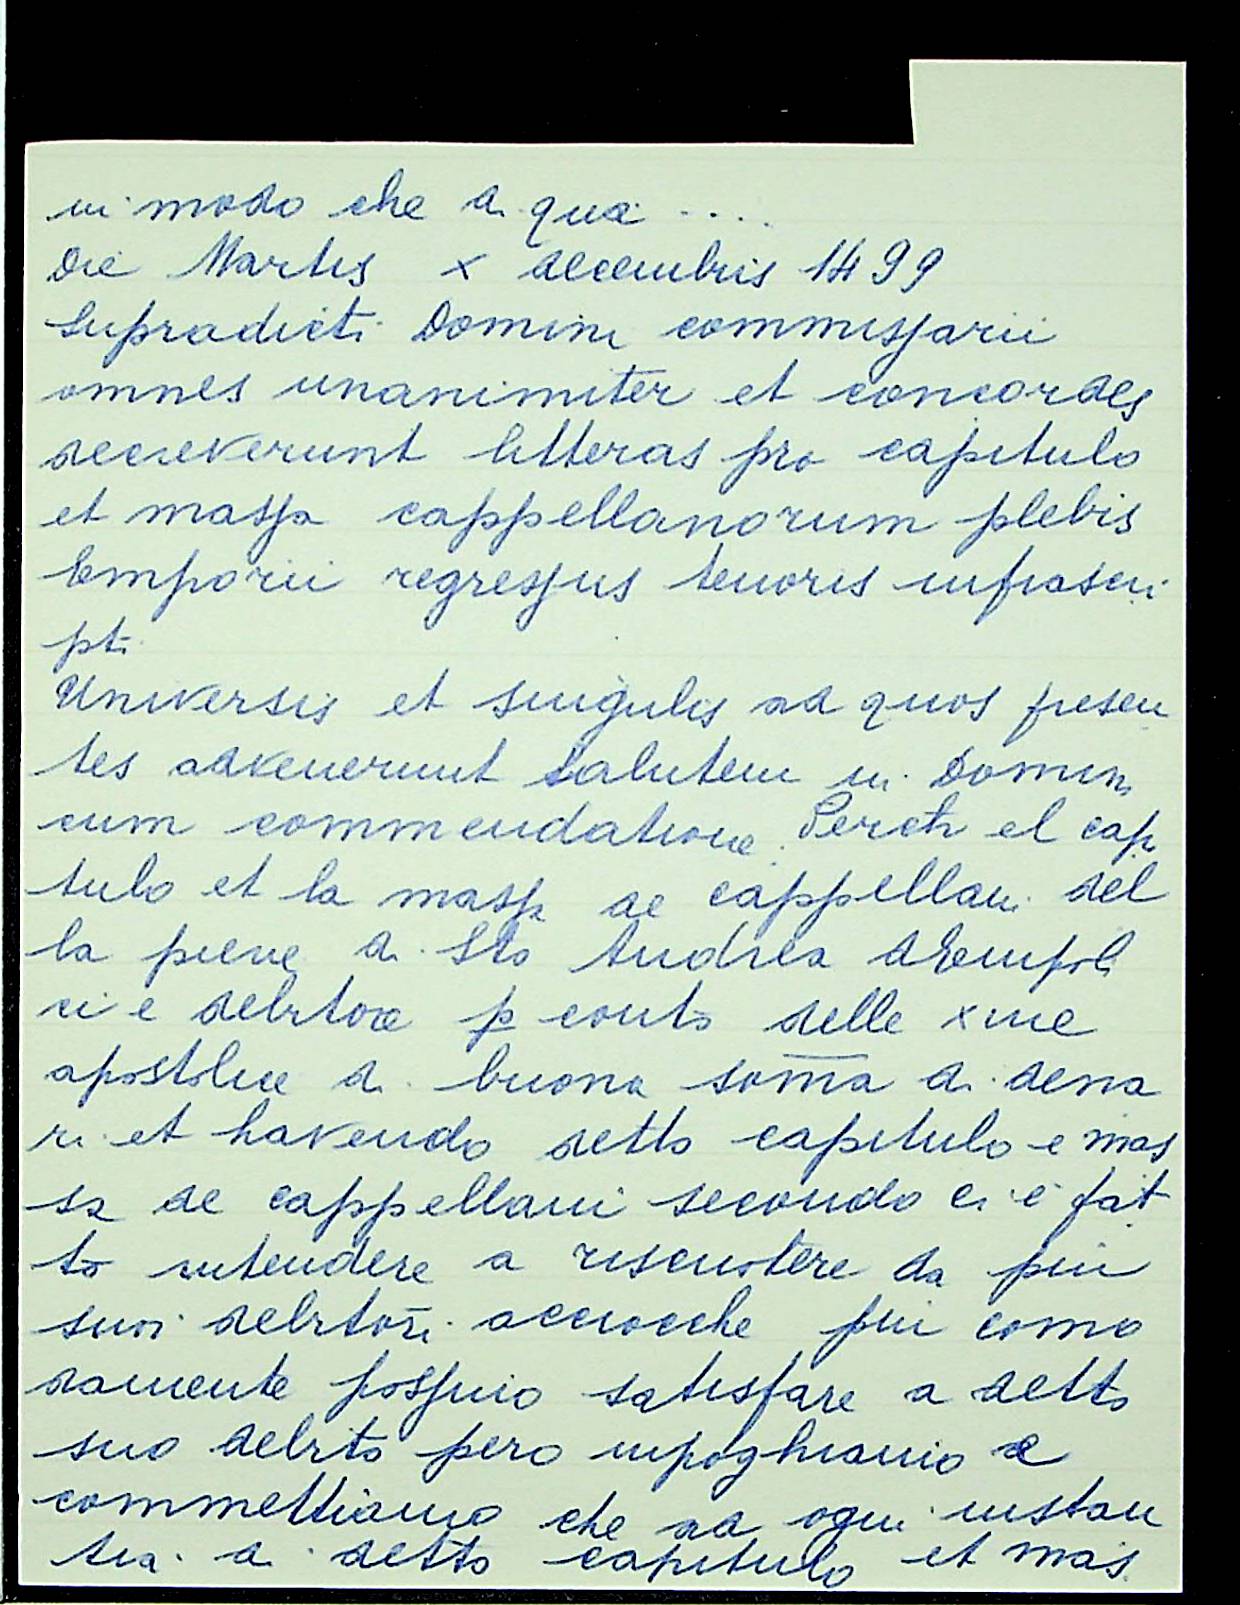 in modo che di qua ....
Die Martis x decembris 1499
Supradicti Domini commissarii
omnes unanimiter et concordes
decreverunt litteras pro capitulo
et massa cappellanorum plebis
Emporii regressus tenoris infrascri
pti
Universis et singulis ad quos presen
tes advenerunt salutem in Domino
cum commendatione. Perchè el capi
tulo et la massa de cappellani del
la pieve di Sto Andrea d'Empoli
ci e debitore p conto delle xme
apostolice di buona soma di dena
ri et havendo detto capitulo e mas
sa de cappellani secondo ci è fat
to intendere a riscuotere da piu
suoi debitori acciocche piu como
damente possino satisfare a detto
suo debito pero impoghiamo e
commettiamo che ad ogni instan
tia di detto capitulo et mas